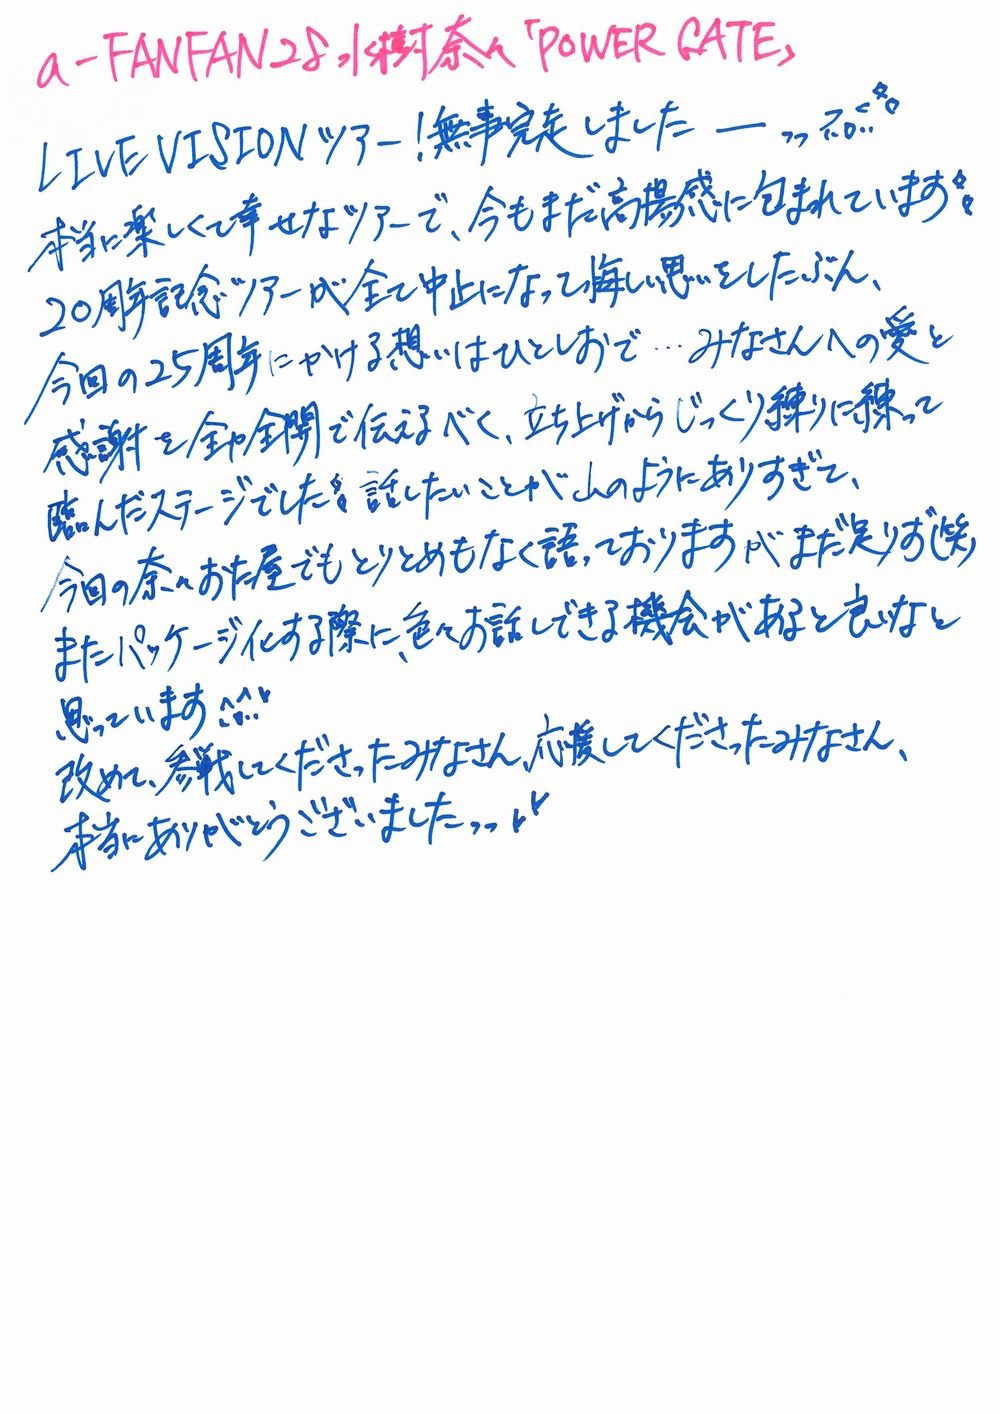 a-FANFAN28 水樹奈々「POWER GATE」
LIVE VISIONツアー!無事完走しましたーっっ
本当に楽しくて幸せなツアーで、今もまだ高揚感に包まれています
20周年記念ツアーが全て中止になって悔しい思いをしたぶん、
今回の25周年にかける想いはひとしおで…みなさんへの愛と
感謝を全力全開で伝えるべく、立ち上げからじっくり練りに練って
臨んだステージでした 話したいことが山のようにありすぎて、
今回の奈々おた屋でもとりとめもなく語っておりますがまだ足りず(笑)
またパッケージ化する際に、色々お話しできる機会があると良いなと
思っています
改めて、参戦してくださったみなさん、応援してくださったみなさん、
本当にありがとうございましたっっ